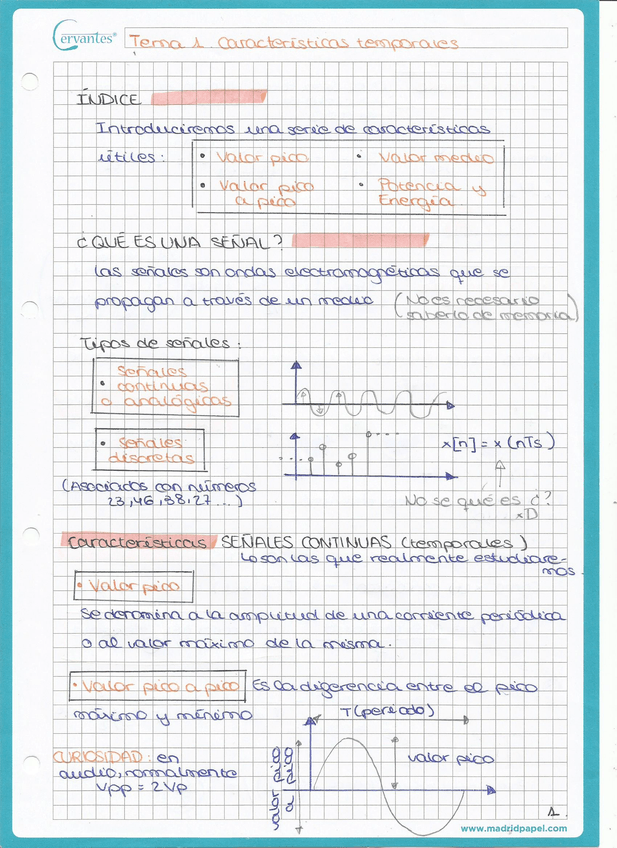 Cervantes®
Tema 1. Características temporales
ÍNDICE
Introduciremos una serie de características
útiles:
• Valor pico
• Valor medio
• Valor pico
a pico
• Potencia y
Energía
¿QUÉ ES UNA SEÑAL?
Las señales son ondas electromagnéticas que se
propagan a través de un medio
(No es necesario
saberlo de memoria)
Tipos de señales:
Señales
• continuas
o analógicas
• Señales
discretas
x[n] = x(nTs)
(Asociados con números
23,46,38,27...)
No se qué es ¿?
xD
Características SEÑALES CONTINUAS (temporales)
Lo son las que realmente estudiare-
mos.
• Valor pico
Se denomina a la amplitud de una corriente periódica
o al valor máximo de la misma.
• Valor pico a pico
Es la diferencia entre el pico
máximo y mínimo
T (período)
CURIOSIDAD: en
audio, normalmente
Vpp = 2Vp
valor pico
a pico
valor pico
1
www.madridpapel.com